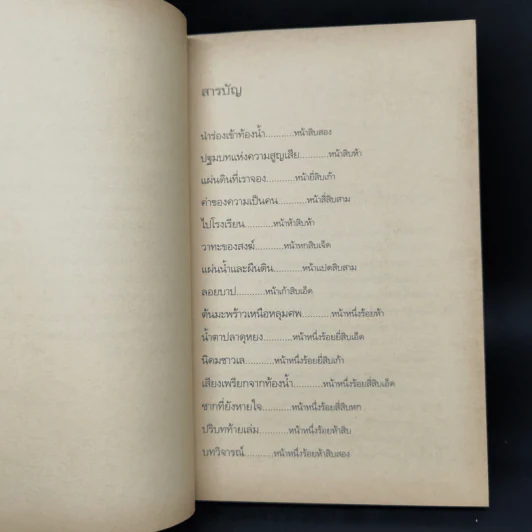 สารบัญ
นำร่องเข้าท้องน้ำ..........หน้าสิบสอง
ปฐมบทแห่งความสูญเสีย..........หน้าสิบห้า
แผ่นดินที่เราจอง..........หน้ายี่สิบเก้า
ค่าของความเป็นคน..........หน้าสี่สิบสาม
ไปโรงเรียน..........หน้าห้าสิบห้า
วาทะของสงฆ์..........หน้าหกสิบเจ็ด
แผ่นน้ำและผืนดิน..........หน้าแปดสิบสาม
ลอยบาป..........หน้าเก้าสิบเอ็ด
ต้นมะพร้าวเหนือหลุมศพ..........หน้าหนึ่งร้อยห้า
น้ำตาปลาดุหยง..........หน้าหนึ่งร้อยยี่สิบเอ็ด
นิคมชาวเล..........หน้าหนึ่งร้อยยี่สิบเก้า
เสียงเพรียกจากท้องน้ำ..........หน้าหนึ่งร้อยสี่สิบเอ็ด
ซากที่ยังหายใจ..........หน้าหนึ่งร้อยสี่สิบหก
ปริบทท้ายเล่ม..........หน้าหนึ่งร้อยห้าสิบ
บทวิจารณ์..........หน้าหนึ่งร้อยห้าสิบสอง